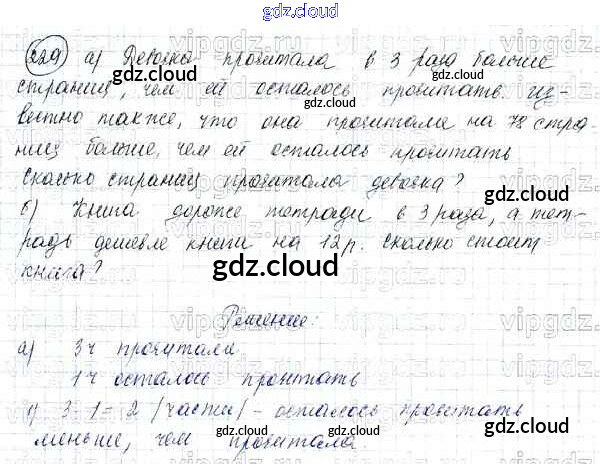 gdz.cloud
229 а) Девочка прочитала в 3 раза больше
страниц, чем ей осталось прочитать. из-
вестно также, что она прочитала на 78 стра-
ниц больше, чем ей осталось прочитать
Сколько страниц прочитала девочка?
б) Книга дороже тетради в 3 раза, а тет-
радь дешевле книги на 12р. Сколько стоит
книга?
gdz.cloud
gdz.cloud
gdz.cloud
gdz.cloud
Решение:
а) 3ч прочитали
1ч осталось прочитать
1) 3-1=2 (части) - осталось прочитать
меньше, чем прочитала
gdz.cloud
gdz.cloud